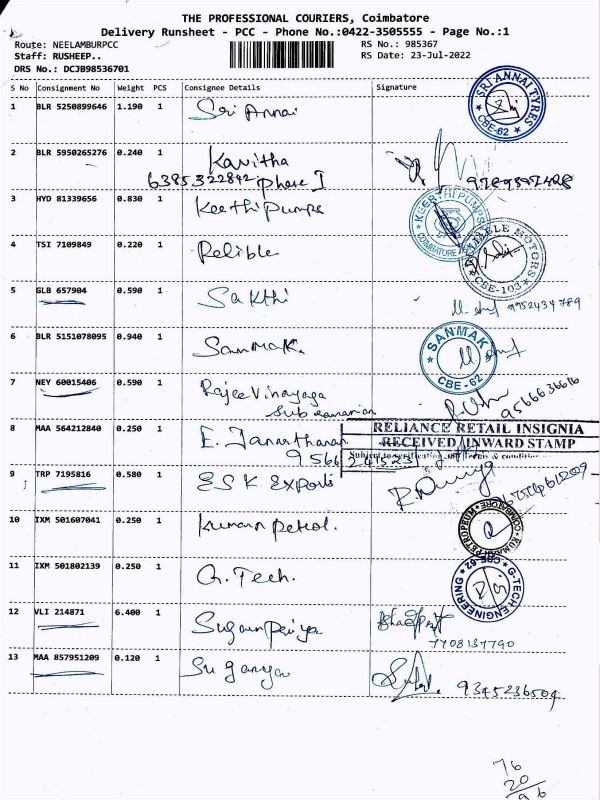 THE PROFESSIONAL COURIERS, Coimbatore
Delivery Runsheet - PCC - Phone No.:0422-3505555 - Page No.:1
Route: NEELAMBURPCC RS No.: 985367
Staff: RUSHEEP.. RS Date: 23-Jul-2022
DRS No.: DCJB98536701
S No Consignment No Weight PCS Consignee Details Signature
1 BLR 5250899646 1.190 1 Sri Annai
SRI ANNAI TYRES
CBE-62
2 BLR 5950265276 0.240 1 Kavitha
6385322842 phase I
3 HYD 81339656 0.830 1 Keethi Pumps
KEERTHI PUMPS
COIMBATORE
4 TSI 7109849 0.220 1 Relible
MOTORS
CBE-103
5 GLB 657904 0.590 1 Sakthi
9952434789
6 BLR 5151078095 0.940 1 Sanmak.
SANMAK
CBE-62
7 NEY 60015406 0.590 1 Rajee Vinayaga
Subramanian
9566636616
8 MAA 564212840 0.250 1 E. Janarthanan
RELIANCE RETAIL INSIGNIA
RECEIVED / INWARD STAMP
Subject to verification
9 TRP 7195816 0.580 1 ESK Exports
10 IXM 501607041 0.250 1 Kumaran Petrol.
COIMBATORE
11 IXM 501802139 0.250 1 G. Tech.
G-TECH ENGINEERING
CBE-62
12 VLI 214871 6.400 1 Sugunpriya
7708137790
13 MAA 857951209 0.120 1 Suganya
9345236504
76
20
96